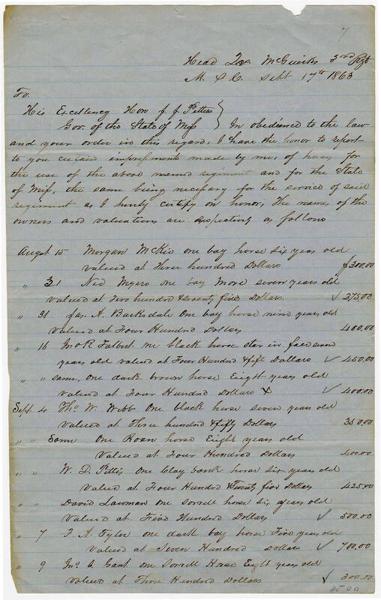 7
Head Qrs McGuirks 3rd Regt
M. S. C. Sept 17th 1863
To
His Excellency Hon J. J. Pettus
Gov. of the State of Miss
In obedience to the law
and your order in this regard. I have the honor to report
to you certain impressments made by me, of horses for
the use of the above named regiment and for the State
of Miss, the same being necessary for the service of said
regiment as I hereby certify on honor, The names of the
owners and valuations are respecting as follows
Augst 15 Morgan McKie one bay horse six years old
valued at three hundred Dollars $300.00
" 31 Ned Myers one bay mare seven years old
valued at two hundred & seventy five Dollars ✓ 275.00
" 31 Jas A. Barksdale One bay horse nine years old
valued at Four Hundred Dollars 400.00
" 16 Talbert one black horse star in face
years old valued at Four Hundred & fifty Dollars ✓ 450.00
" " same, one dark brown horse Eight years old
valued at Four Hundred Dollars ✓ 400.00
Sept. 4 Thos W. Webb One black horse seven years old
valued at Three hundred & fifty Dollars 350.00
" " Same One Roan horse Eight years old
valued at Four Hundred Dollars 400.00
" " W. D. Pettis, One Clay bank horse six years old
valued at Four Hundred & Twenty five Dollars 425.00
" " David Lawman One Sorrell horse six years old
valued at Five Hundred Dollars ✓ 500.00
" 7 F. A. Tyler one dark bay horse Five years old
Valued at Seven Hundred dollars ✓ 700.00
" 9 Gant one Sorrell Horse Eight years old
valued at Three Hundred Dollars ✓ 300.00